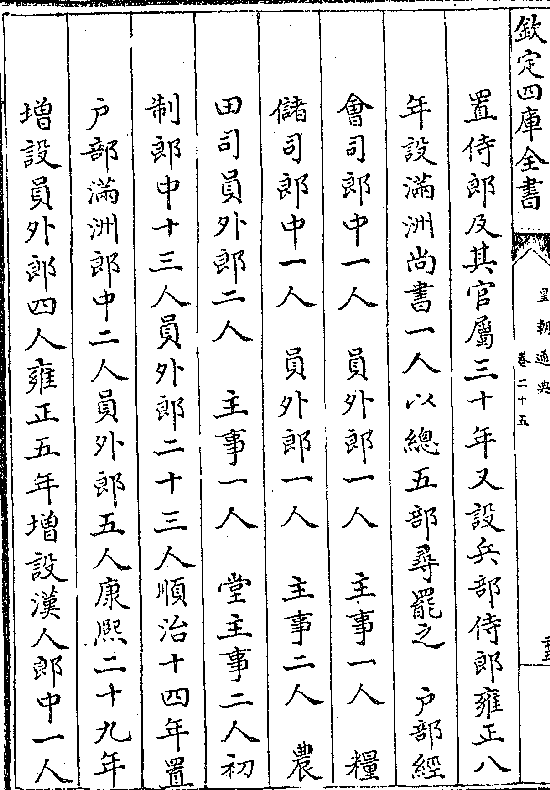 欽定四庫全書
皇朝通典
卷二十五
置侍郎及其官屬三十年又設兵部侍郎雍正八
年設滿洲尚書一人以總五部尋罷之　户部經
會司郎中一人　員外郎一人　主事一人　糧
儲司郎中一人　員外郎一人　主事二人　農
田司員外郎二人　主事一人　堂主事二人初
制郎中十三人員外郎二十三人順治十四年置
户部滿洲郎中二人員外郎五人康熙二十九年
增設員外郎四人雍正五年增設漢人郎中一人